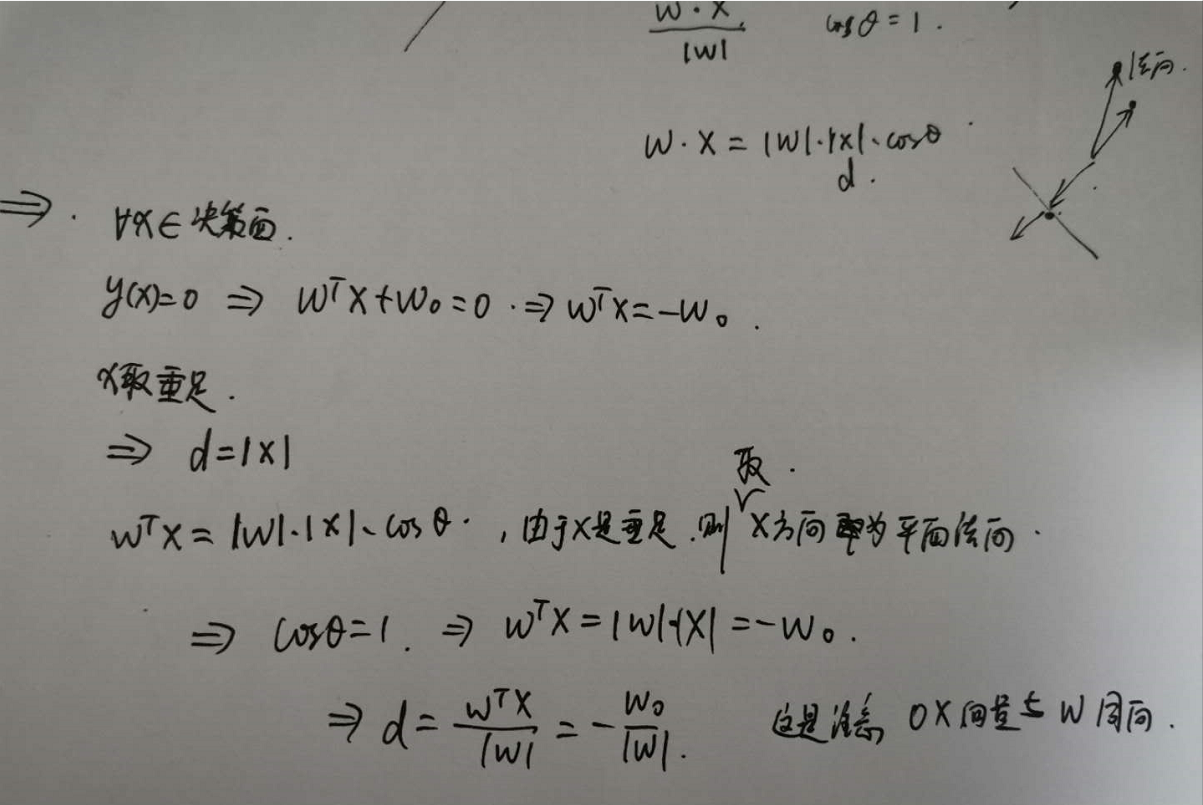 W · X / |W|    cosθ = 1 .
法向.
W · X = |W| · |X| · cosθ
d .
⇒ . ∀x ∈ 决策面 .
y(x)=0 ⇒ WᵀX + W₀ = 0 . ⇒ WᵀX = -W₀ .
x取垂足 .
⇒ d = |X|
取 .
WᵀX = |W| · |X| · cosθ . , 由于X是垂足 . 则 X方向即为平面法向 .
⇒ cosθ = 1 . ⇒ WᵀX = |W| · |X| = -W₀ .
⇒ d = WᵀX / |W| = - W₀ / |W| .    这是 OX向量与W同向 .